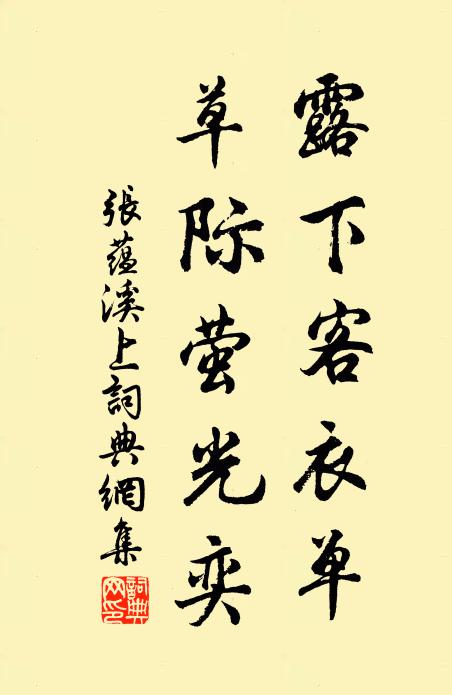 露下客衣单
草际萤光奕
張蘊溪上詞典網集
詞典网印